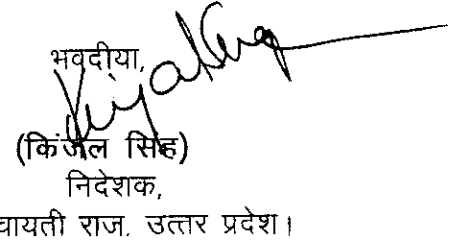 भवदीया,
(किंजल सिंह)
निदेशक,
चायती राज, उत्तर प्रदेश।